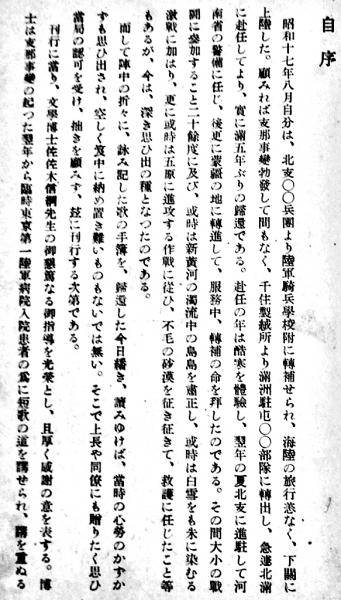 自序
昭和十七年八月自分は、北支〇〇兵團より陸軍騎兵學校附に轉補せられ、海陸の旅行恙なく、下關に
上陸した。顧みれば支那事變勃發して間もなく、千住製絨所より滿洲駐屯〇〇部隊に轉出し、急遽北滿
に赴任してより、實に滿五年ぶりの歸還である。赴任の年は酷寒を體驗し、翌年の夏北支に進駐して河
南省の警備に任じ、後更に蒙疆の地に轉進して、服務中、轉補の命を拜したのである。その間大小の戰
鬪に參加すること二十餘度に及び、或時は新黃河の濁流中の島島を肅正し、或時は白雪をも朱に染むる
激戰に加はり、更に或時は五原に進攻する作戰に從ひ、不毛の砂漠を征き征きて、救護に任じたこと等
もあるが、今は、深き思ひ出の種となつたのである。
而して陣中の折々に、詠み記した歌の手簿を、歸還した今日繙き、讀みゆけば、當時の心勞のかずか
ずも思ひ出され、空しく笈中に納め置き難いものもないでは無い。そこで上長や同僚にも贈りたく思ひ
當局の認可を受け、拙きを顧みず、玆に刊行する次第である。
刊行に當り、文學博士佐佐木信綱先生の御懇篤なる御指導を光榮とし、且厚く感謝の意を表する。博
士は支那事變の起つた翌年から臨時東京第一陸軍病院入院患者の爲に短歌の道を講ぜられ、講を重ぬる